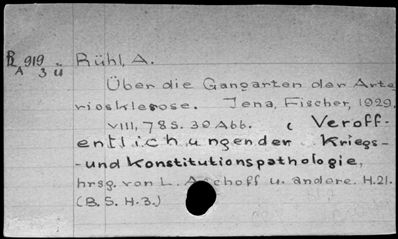 B 919 Rühl, A.
A 3 ü
Über die Gangarten der Arte
riosklerose. Jena, Fischer, 1929.
VIII, 78 S. 30 Abb. ( Veröff-
entlichungen der Kriegs-
-und Konstitutionspathologie,
hrsg. von L. Aschoff u. andere. H.21.
(B. 5. H.3.)